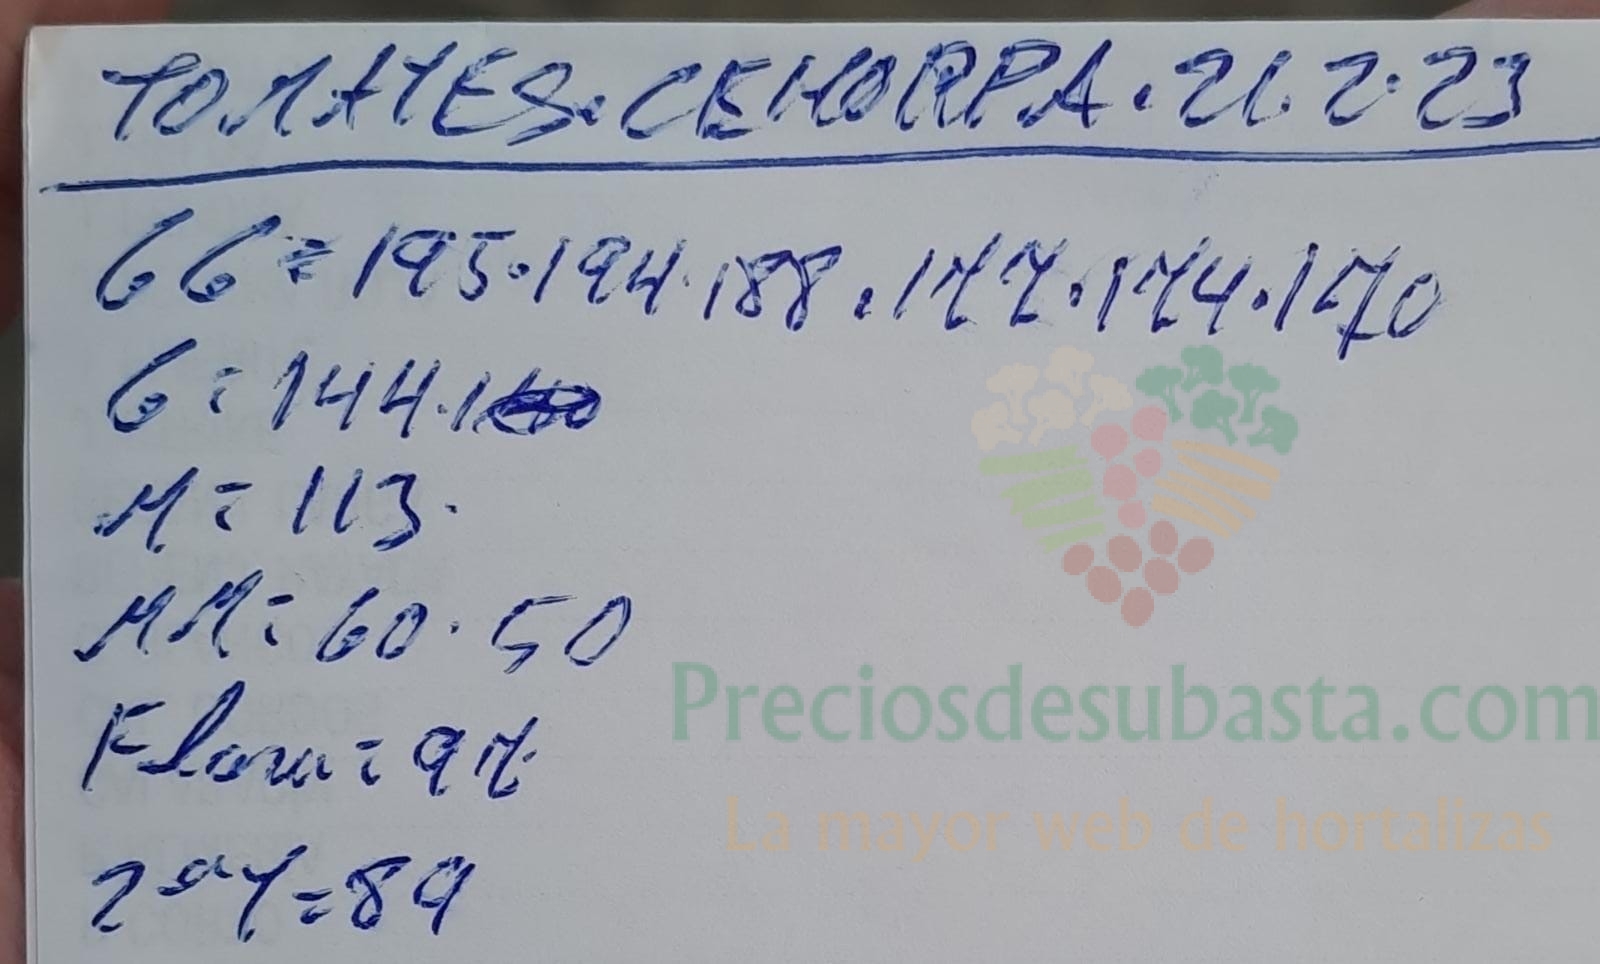 TOMATES.CEHORPA.21.2.23
GG=195.194.188.177.174.170
G=144.
M=113.
MM=60.50
Flow=97
2ªY=89
Preciosdesubasta.com
La mayor web de hortalizas